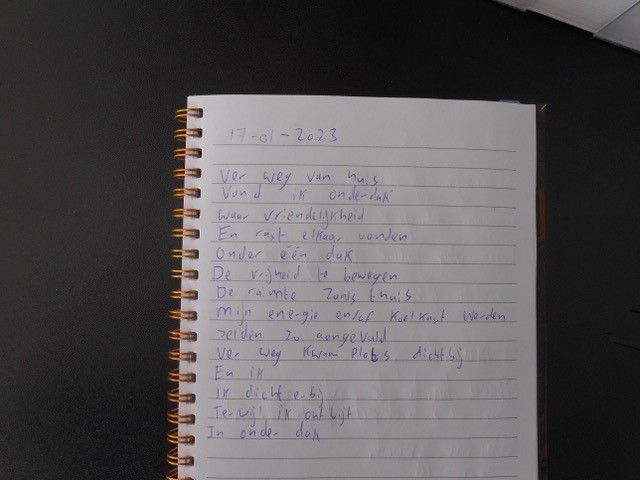 17-01-2023
Ver weg van huis
Vond ik onderdak
waar vriendelijkheid
En rust elkaar vonden
Onder één dak
De vrijheid te bewegen
De ruimte zonis thuis
Mijn energie en/of koelkast werden
zelden zo aangevuld
Ver weg kwam plots dichtbij
En ik
Ik dicht erbij
Terwijl ik ontbijt
In onder dak